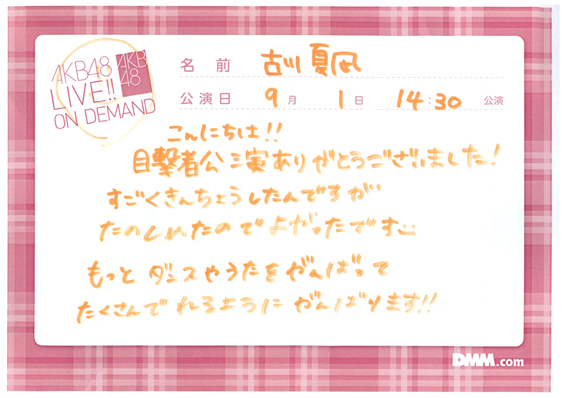 AKB48
LIVE!!
ON DEMAND
AKB
48
名前 古川夏凪
公演日 9月 1日 14:30 公演
こんにちは!!
目撃者公演ありがとうございました!
すごくきんちょうしたんですが
たのしめたのでよかったです
もっとダンスやうたをがんばって
たくさんでれるようにがんばります!!
DMM.com